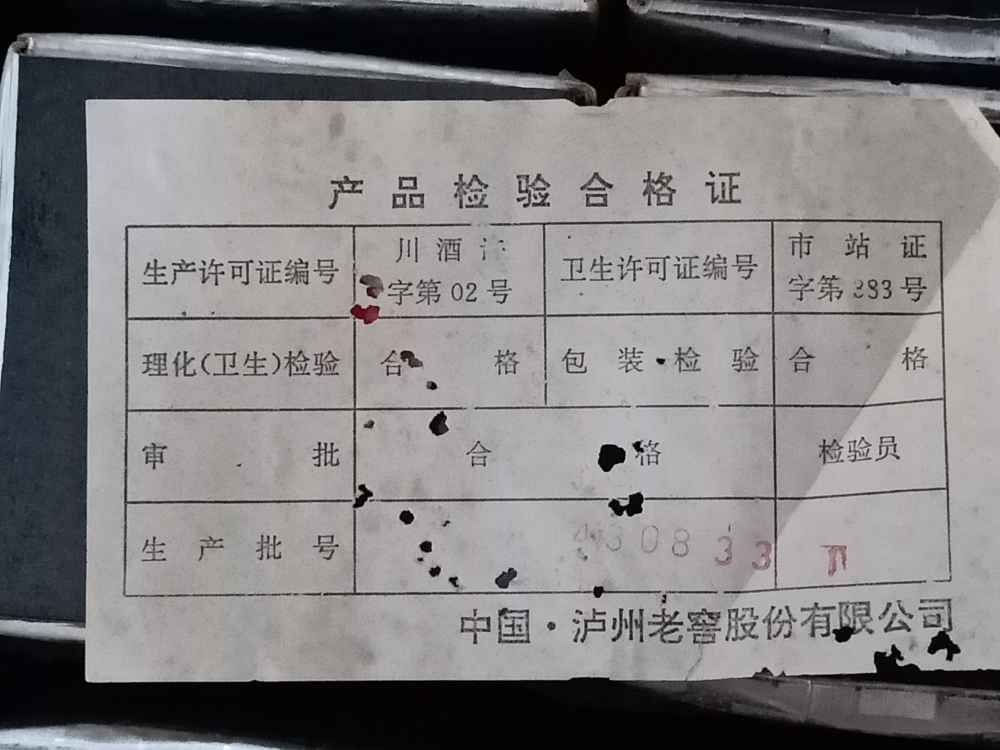 产品检验合格证
生产许可证编号 川酒许字第02号 卫生许可证编号 市站证字第283号
理化(卫生)检验 合格 包装检验 合格
审批 合格 检验员
生产批号 308 33
中国·泸州老窖股份有限公司